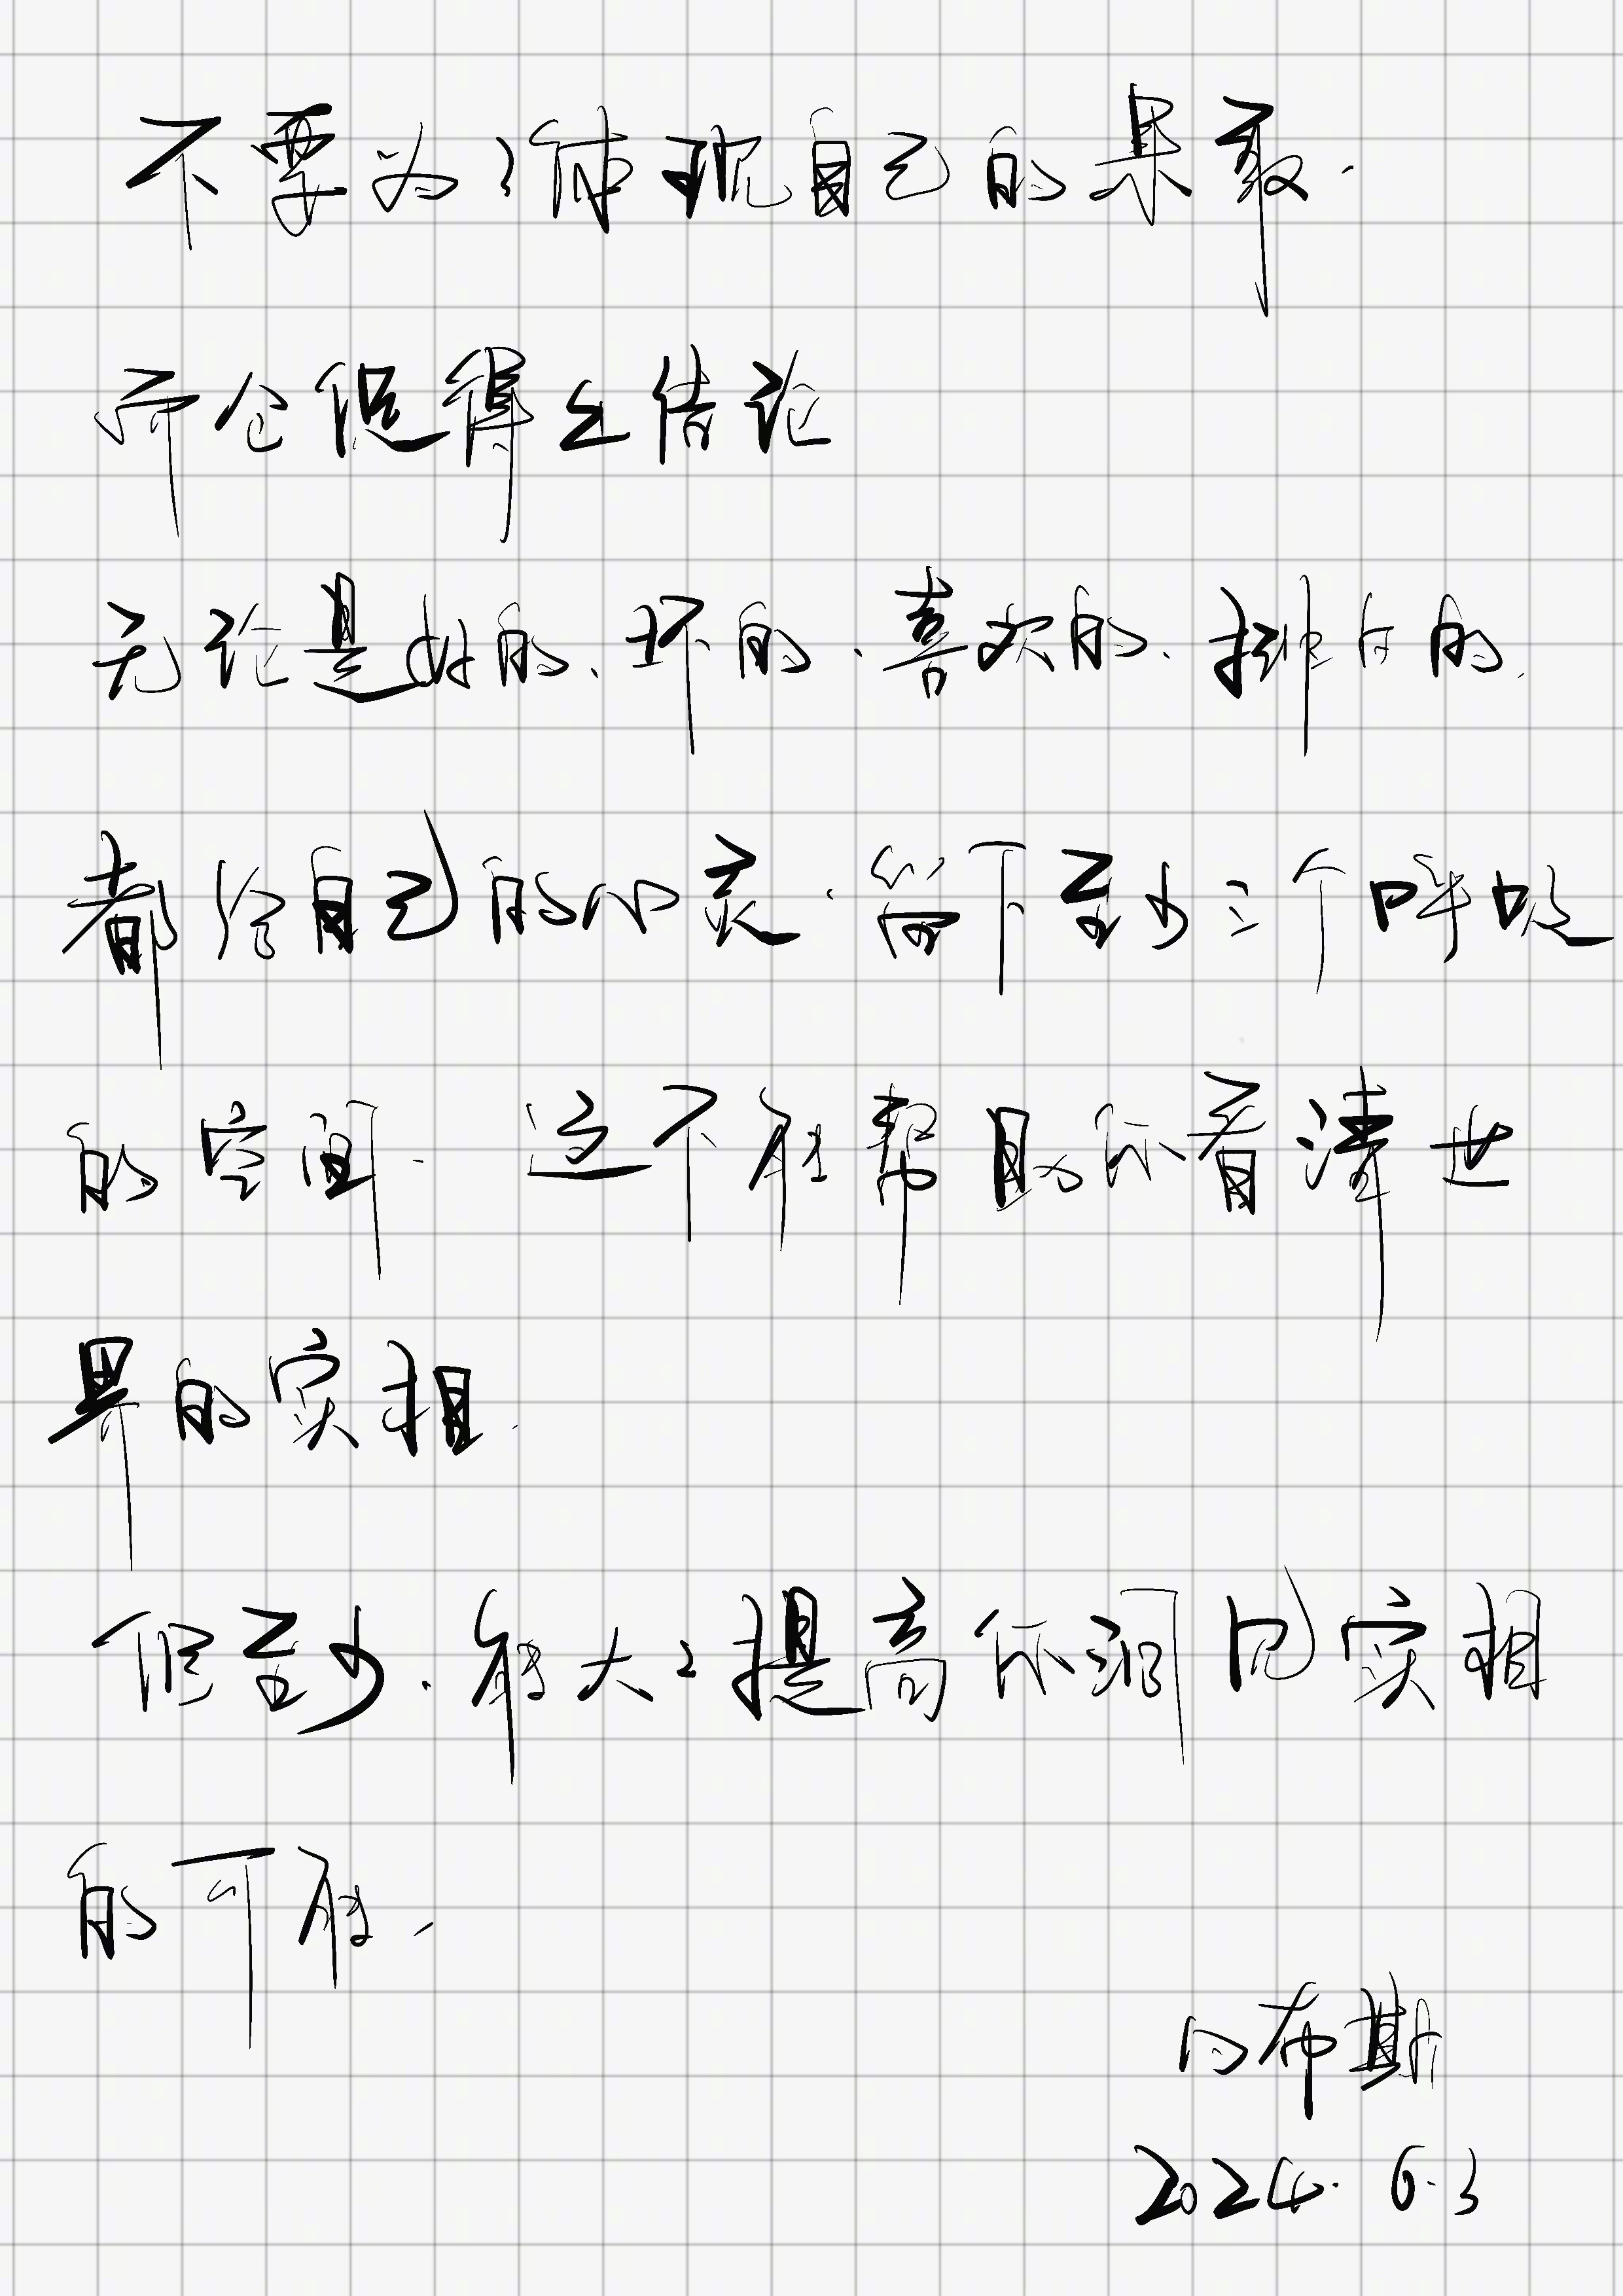 不要为了体现自己的果敢.
而仓促得出结论
无论是好的、坏的、喜欢的、排斥的,
都给自己的心灵.留下至少三个呼吸
的空间. 这不能帮助你看清世
界的实相.
但至少.能大大提高你洞见实相
的可能.
布斯
2024.6.3